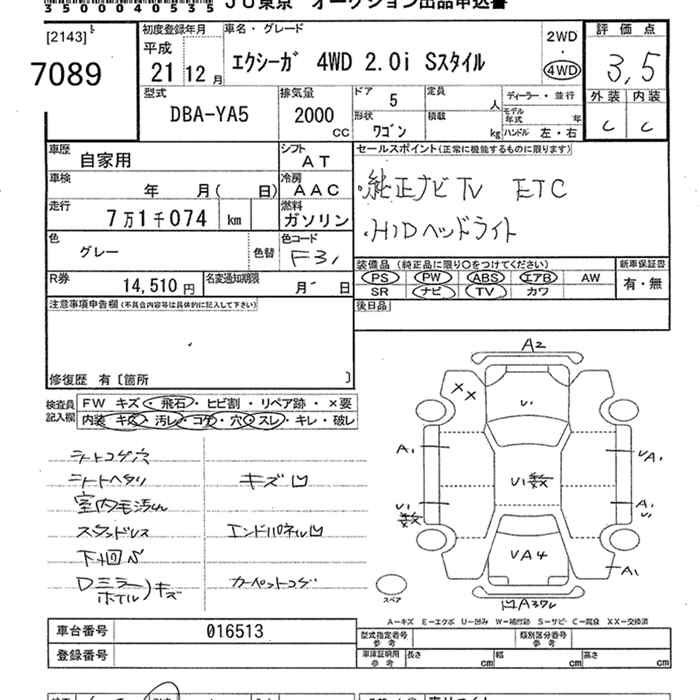 35004053 5
JU東京 オークション出品申込書
[2143]
7089
初度登録年月
平成
21 12 月
車名・グレード
エクシーガ 4WD 2.0i Sスタイル
2WD
・
4WD
評価点
3,5
外装 内装
C C
型式
DBA-YA5
排気量
2000
CC
ドア 5
定員 人
ディーラー・並行
モデル年式 年
形状 ワゴン
積載 kg
ハンドル 左・右
車歴
自家用
シフト
AT
車検
年 月( 日)
冷房
AAC
走行
7万1千074 km
燃料
ガソリン
色
グレー
色替
色コード
R券
14,510 円
名変通知期限
月 日
セールスポイント(正常に機能するものに限ります)
・純正ナビ TV ETC
・HIDヘッドライト
装備品(純正品に限り〇をつけてください)
新車保証書
PS PW ABS エアB AW
SR ナビ TV カワ
有・無
後日品
注意事項申告欄(不具合内容等は具体的に記入して下さい)
修復歴 有〔箇所 〕
検査員記入欄
FW キズ・飛石・ヒビ割・リペア跡・×要
内装 キズ・汚レ・コゲ・穴・スレ・キレ・破レ
シートコゲ穴
シートヘタリ キズ凹
室内毛汚れ
ステアンドレス エンドパネル凹
下廻S
Dミラー
ホイル)キズ カーペットコゲ
A2
××
U1
A1
U1数
UA1
U1数
A1
U1
UA4
A1
スペア
A-キズ E-エクボ U-凹み W-補修跡 S-サビ C-腐食 XX-交換済
車台番号 016513
登録番号
型式指定番号 参考
類別区分番号 参考
車庫証明用 参考
長さ cm 幅 cm 高さ cm